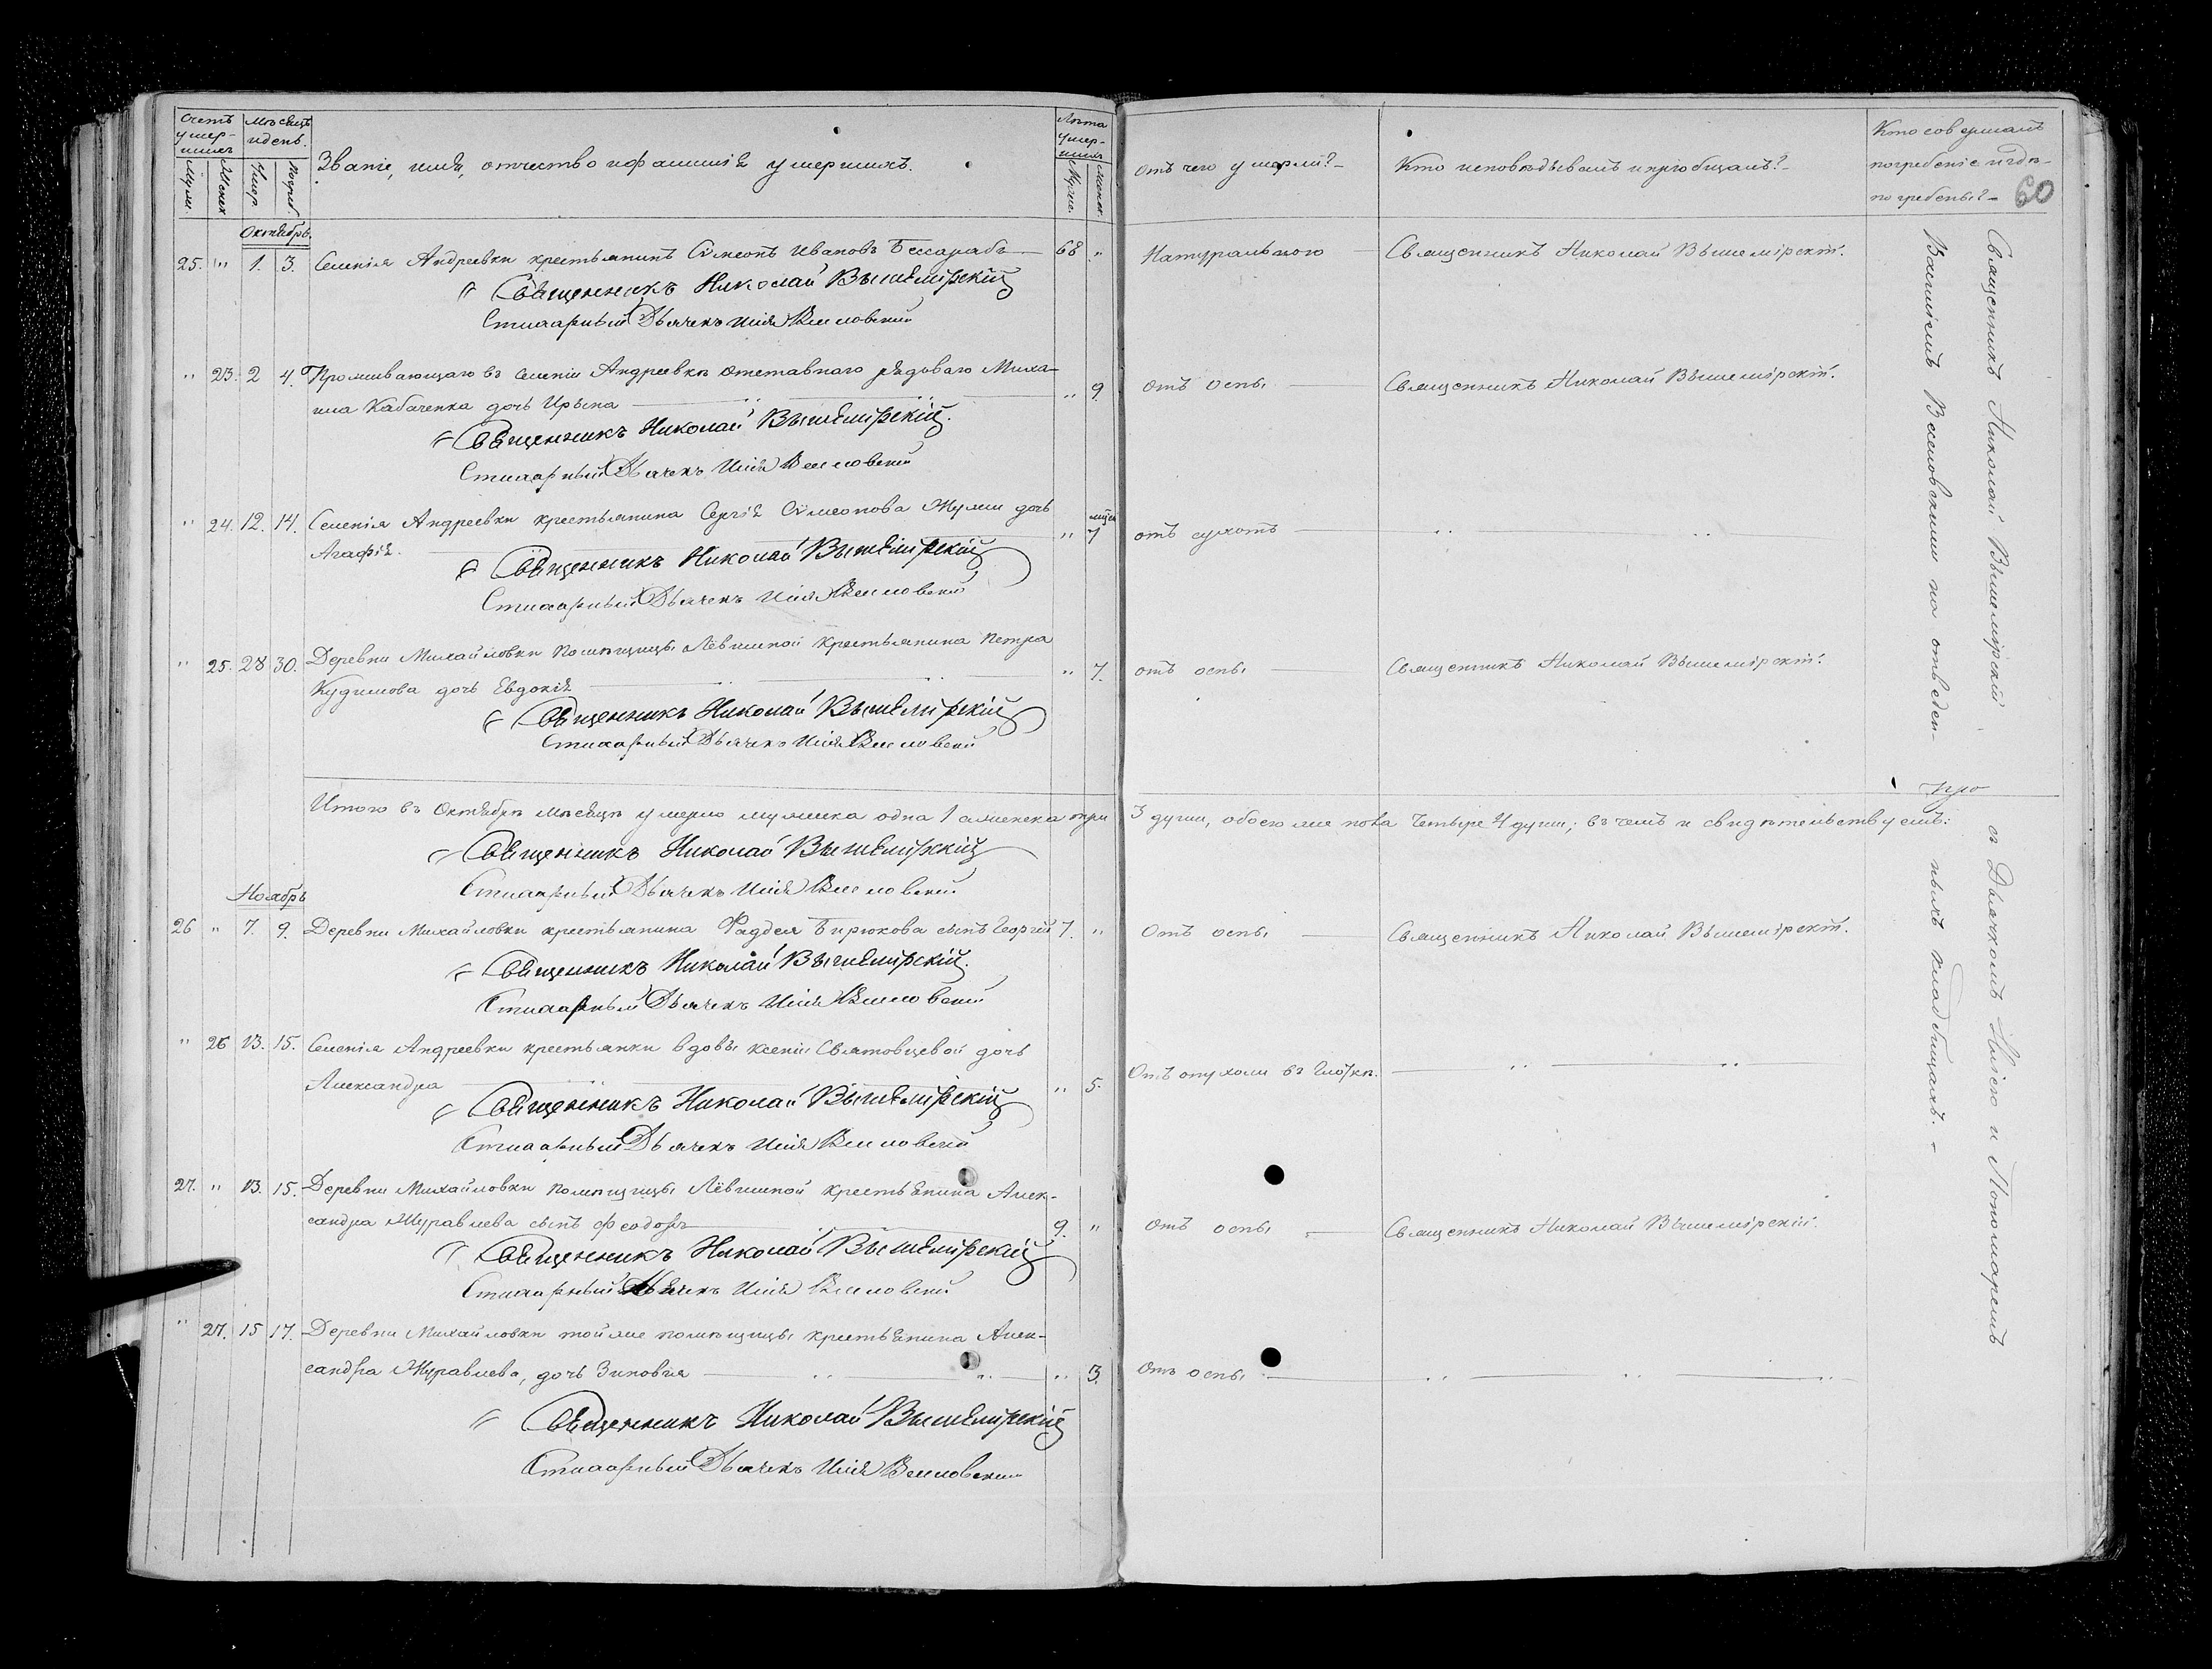 Счетъ умершихъ
Мѣсяцъ и день.
Званіе, имя, отчество и фамилія умершихъ.
Лѣта умершихъ
Отъ чего умерли?
Кто исповѣдывалъ и пріобщалъ?
Кто совершалъ
погребеніе и гдѣ
погребены?
60
Муж.
Женск
Умер.
Погреб.
Муж.
Женск.
Октябрь.
25. " 1. 3. Селенія Андреевки крестьянинъ Сѵмеонъ Ивановъ Бессарабъ 68 " Натуральною Священникъ Николай Вышемірскій.
Священникъ Николай Вышемірскій
Стихарный Дьячекъ Илія Веселовскій
" 23. 2 4. Проживающаго въ селеніи Андреевкѣ отставнаго рядоваго Миха-
ила Кабаченка дочь Ирина " 9. отъ оспы Священникъ Николай Вышемірскій.
Священникъ Николай Вышемірскій.
Стихарный Дьячекъ Илія Веселовскій
" 24. 12. 14. Селенія Андреевки крестьянина Сергія Сѵмеонова Жулы дочь
Агафія. " 7 отъ сухотъ " "
Священникъ Николай Вышемірскій
Стихарный Дьячекъ Илія Веселовскій
" 25. 28 30. Деревни Михайловки помѣщицы Лёвшиной крестьянина Петра
Кудимова дочь Евдокія " 7. отъ оспы Священникъ Николай Вышемірскій.
Священникъ Николай Вышемірскій
Стихарный Дьячекъ Илія Веселовскій
Итого въ Октябрѣ мѣсяцѣ умерло мужеска одна 1 а женска три 3 души, обоего же пола четыре 4 души; въ чемъ и свидѣтельствуемъ:
Священникъ Николай Вышемірскій
Стихарный Дьячекъ Илія Веселовскій
Ноябрь
26 " 7. 9. Деревни Михайловки крестьянина Фаддея Бирюкова сынъ Георгій 7. " Отъ оспы Священникъ Николай Вышемірскій.
Священникъ Николай Вышемірскій.
Стихарный Дьячекъ Илія Веселовскій
" 26 13. 15. Селенія Андреевки крестьянки вдовы Ксеніи Святовцевой дочь
Александра " 5. Отъ опухоли въ глоткѣ. " "
Священникъ Николай Вышемірскій
Стихарный Дьячекъ Илія Веселовскій
27. " 13. 15. Деревни Михайловки помѣщицы Лёвшиной крестьянина Алек-
сандра Журавлева сынъ Феодоръ 9. " Отъ оспы Священникъ Николай Вышемірскій.
Священникъ Николай Вышемірскій
Стихарный Дьячекъ Илія Веселовскій
" 27. 15 17. Деревни Михайловки той же помѣщицы крестьянина Алек-
сандра Журавлева, дочь Зиновія " 3. Отъ оспы " " "
Священникъ Николай Вышемірскій
Стихарный Дьячекъ Илія Веселовскій
Священникъ Николай Вышемірскій съ Дьячкомъ Иліею и Пономаремъ
Веселовскими на отведен-
ныхъ кладбищахъ.